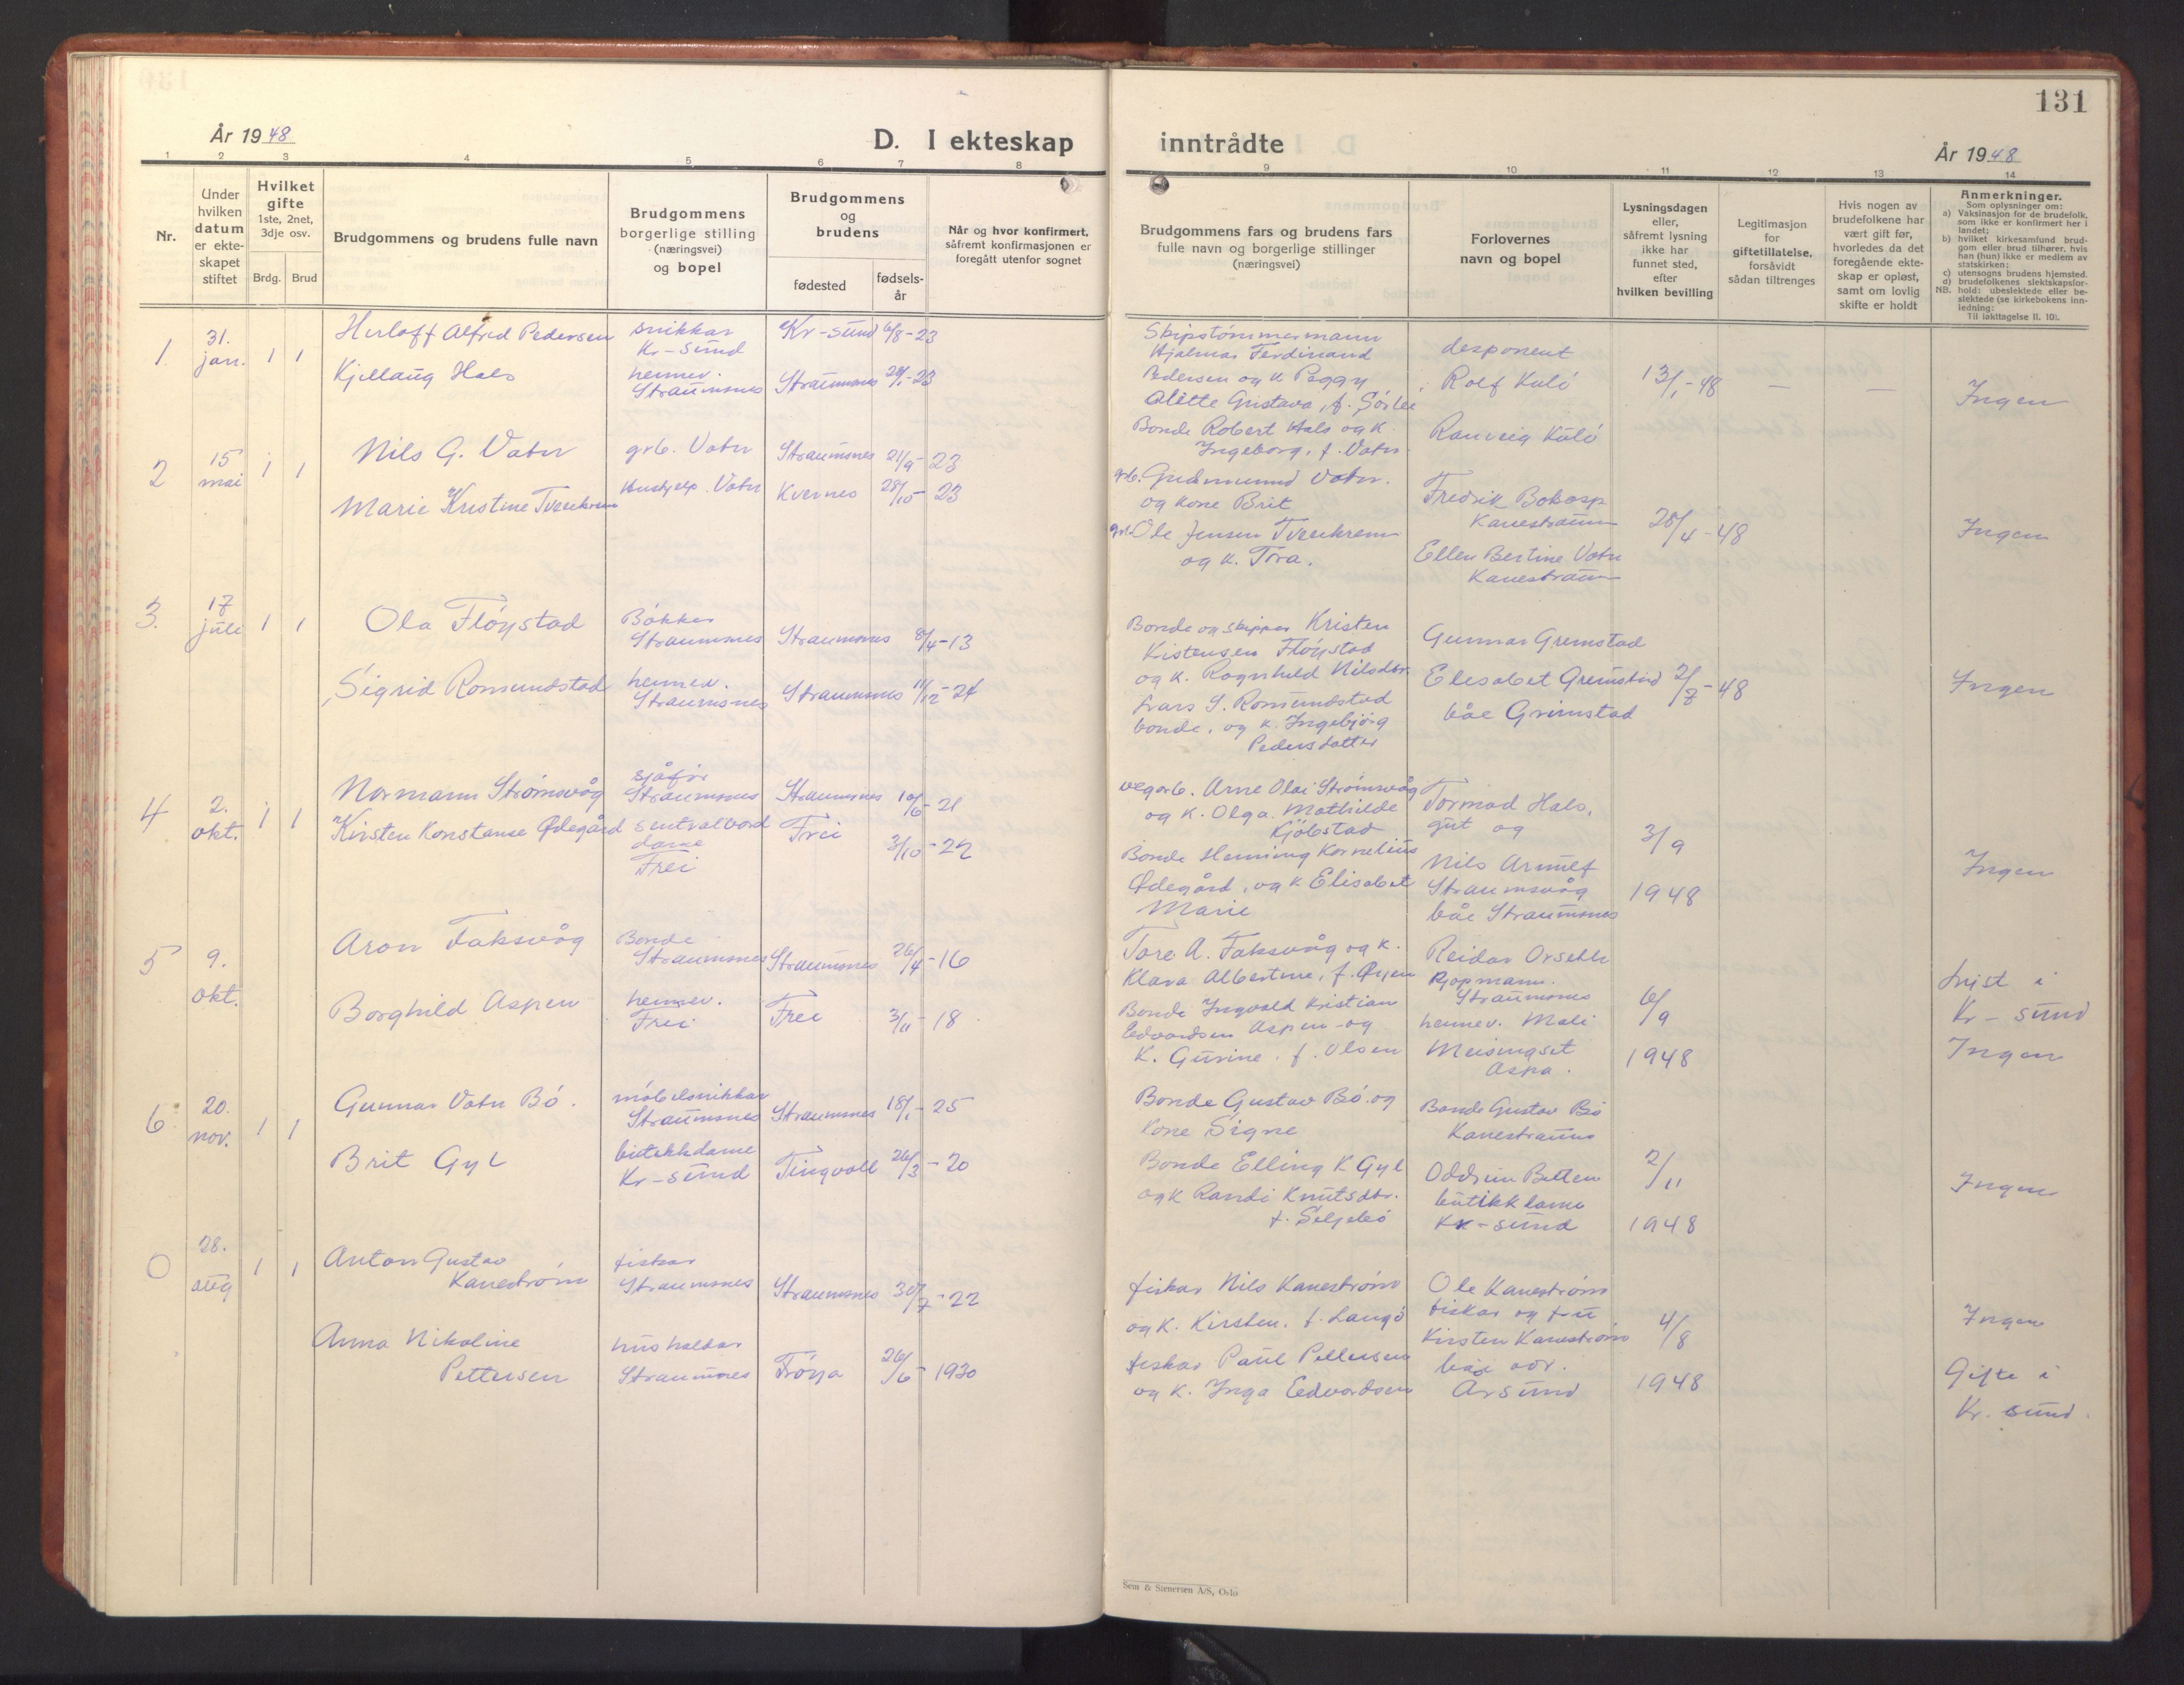 131
År 1948
D. I ekteskap
inntrådte
År 1948
1 2 3 4 5 6 7 8
9 10 11 12 13 14
Nr.
Under
hvilken
datum
er ekte-
skapet
stiftet
Hvilket
gifte
1ste, 2net,
3dje osv.
Brdg. Brud
Brudgommens og brudens fulle navn
Brudgommens
borgerlige stilling
(næringsvei)
og bopel
Brudgommens
og
brudens
fødested
fødsels-
år
Når og hvor konfirmert,
såfremt konfirmasjonen er
foregått utenfor sognet
Brudgommens fars og brudens fars
fulle navn og borgerlige stillinger
(næringsvei)
Forlovernes
navn og bopel
Lysningsdagen
eller,
såfremt lysning
ikke har
funnet sted,
efter
hvilken bevilling
Legitimasjon
for
giftetillatelse,
forsåvidt
sådan tiltrenges
Hvis nogen av
brudefolkene har
vært gift før,
hvorledes da det
foregående ekte-
skap er opløst,
samt om lovlig
skifte er holdt
Anmerkninger.
Som oplysninger om:
a) Vaksinasjon for de brudefolk,
som ikke er konfirmert her i
landet;
b) hvilket kirkesamfund brud-
gom eller brud tilhører, hvis
han (hun) ikke er medlem av
statskirken;
c) utensogns brudens hjemsted.
d) brudefolkenes slektskapsfor-
NB. hold: ubeslektede eller be-
slektede (se kirkebokens inn-
ledning:
Til iakttagelse II. 10).
1. 31.
jan. 1 1
Herloff Alfred Pedersen
Kjellaug Hals
snikkar
Kr-sund
heimev.
Straumsnes
Kr-sund 6/8-23
Straumsnes 24/1-23
Skipstømmermann
Hjalmar Ferdinand
Pedersen og k Peggy
Alette Gustava, f. Sørlie
Bonde Robert Hals og k.
Ingeborg, f. Vatn
disponent
Rolf Kulö
Ranveig Kulö
13/1-48 — —
Ingen
2 15
mai 1 1
Nils G. Vatn
Marie Kristine Tveekrem
grb. Vatn
Hushjelp. Vatn
Straumsnes 21/9-23
Kvernes 28/10-23
grb. Gudmund Vatn.
og kone Brit
grb. Ole Jensen Tveekrem
og k. Tora.
Fredrik Bokasp
Kanestraum
Ellen Bertine Vatn
Kanestraum
28/4-48
Ingen
3. 17
juli 1 1
Ola Flöystad
Sigrid Romundstad
Bökker
Straumsnes
heimev.
Straumsnes
Straumsnes 8/4-13
Straumsnes 11/12-24
Bonde og skipper Kristen
Kistensen Flöystad
og k. Ragnhild Nilsdtr.
Lars S. Romundstad
bonde, og k. Ingebjörg
Pedersdatter
Gunnar Gremstad
Elesabet Gremstad
båe Grimstad
2/7-48
Ingen
4 2.
okt. 1 1
Normann Strömsvåg
Kirsten Konstanse Ødegård
sjåför
Straumsnes
sentralbord
dame
Frei
Straumsnes 10/6-21
Frei 3/10-27
vegarb. Arne Olai Strömsvåg
og k. Olga Mathilde
Kjöbstad
Bonde Henning Kornelius
Ødegård, og k Elisabet
Marie
Tormod Hals,
gut og
Nils Arnulf
Straumsvåg
båe Straumsnes
3/9
1948
Ingen
5 9.
okt.
Aron Faksvåg
Borghild Aspen
Bonde
Straumsnes
heimev.
Frei
Straumsnes 26/4-16
Frei 3/11-18
Tore A. Faksvåg og k.
Klara Albertine, f. Øyen
Bonde Ingvald Kristian
Edvardsen Aspen og
k. Gurine, f. Olsen
Reidar Orseth
kjopmann.
Straumsnes
heimev. Mali
Meisingset
Aspa.
6/9
1948
lyst i
Kr-sund
Ingen
6 20.
nov. 1 1
Gunnar Vatn Bö.
Brit Gyl
möbelsnikkar
Straumsnes
butikkdame
Kr-sund
Straumsnes 18/1-25
Tingvoll 26/3-20
Bonde Gustav Bö og
kone Signe
Bonde Elling K Gyl
og k Randi Knutsdtr.
f. Seljebö
Bonde Gustav Bö
Kanestraum
Oddrun Botten
butikkdame
Kr-sund
2/11
1948
Ingen
0 28.
aug 1 1
Anton Gustav
Kaneström
Anna Nikoline
Pettersen
fiskar
Straumsnes
hushaldar
Straumsnes
Straumsnes 30/7-22
Fröya 26/6-1930
fiskar Nils Kaneström
og k. Kirsten, f. Langö
fiskar Paul Pettersen
og k. Inga Edvardsen
Ole Kaneström
fiskar og fru
Kirsten Kaneström
båe adr.
Arsund
4/8
1948
Ingen
Gifte i
Kr. sund.
Sem & Stenersen A/S, Oslo